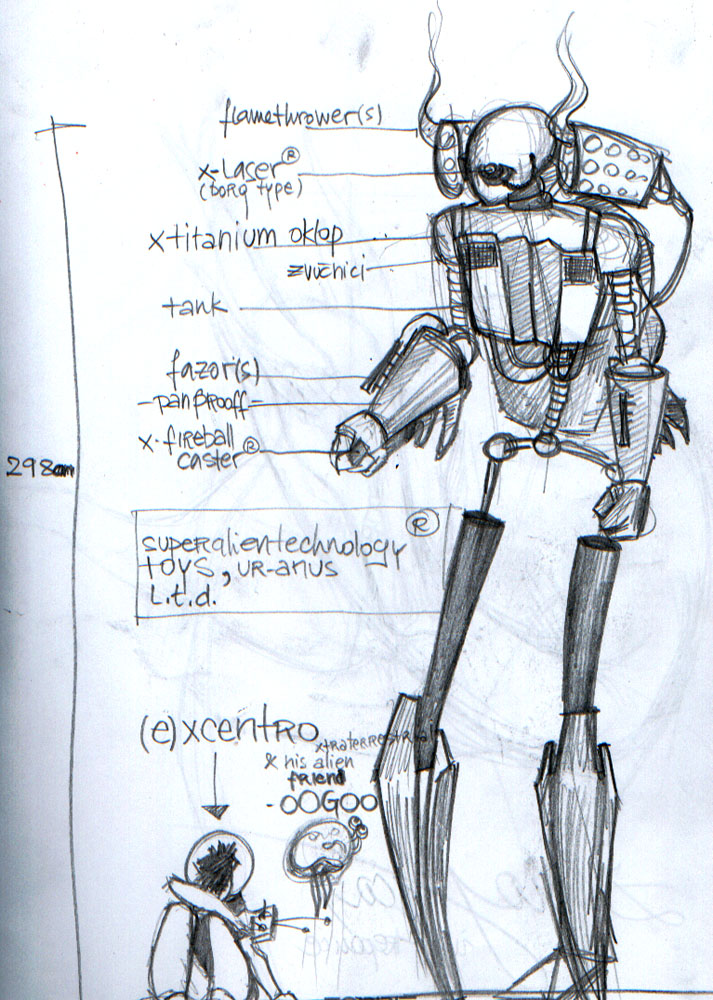 flamethrower(s)
x-Laser®
(borg type)
x-titanium oklop
zvučnici
tank
fazor(s)
-panβrooff-
x-fireball
caster®
298cm
superalientechnology®
toys, ur-anus
L.t.d.
(e)xcentro
xtraterrestrial
& his alien
friend
-OOGOO